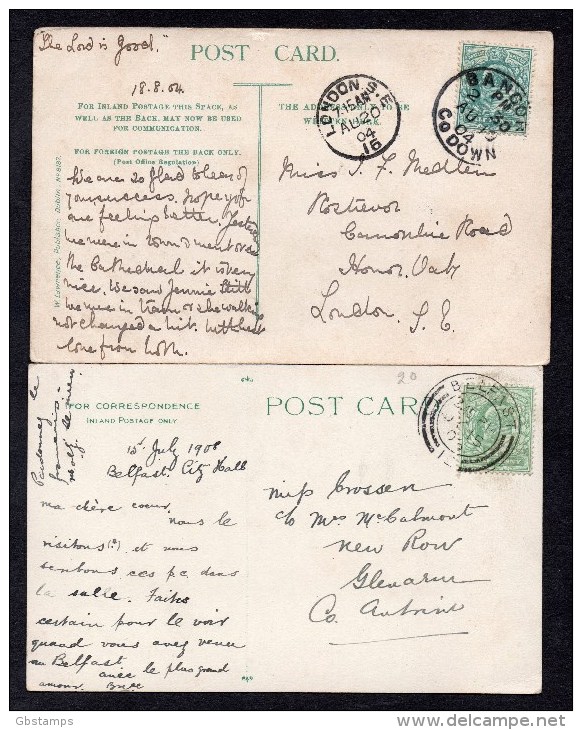 "The Lord is Good."
POST CARD.
18.8.04
FOR INLAND POSTAGE THIS SPACE, AS
WELL AS THE BACK, MAY NOW BE USED
FOR COMMUNICATION.
THE ADDRESS ONLY TO BE
WRITTEN HERE.
FOR FOREIGN POSTAGE THE BACK ONLY.
(Post Office Regulation)
W Lawrence, Publisher, Dublin.
We are so glad to hear of
your success. hope you
are feeling better. Yesterday
we were in town & went over
the Cathedral it is very
nice. We saw Jennie Still
we were in tram & she walking
not changed a bit. With best
love from both.
LONDON. S.E
AU 20
04
16
BANGOR
AU 19
04
CO DOWN
Miss J. F. Medlen
Rostrevor
Road
Honor Oak
London. S. E.
FOR CORRESPONDENCE
INLAND POSTAGE ONLY
POST CARD
20
BELFAST
15th July 1908
Belfast City Hall
ma chère coeur.
nous le
visitons(?) et nous
ces p.c. dans
la salle. Faites
certain pour le voir
quand vous avez venu
au Belfast.
avec le plus grand
amour.
Pardonnez le
français
Miss Crossen
c/o Mrs McCalmont
New Row
Glenarm
Co. Antrim
Gbstamps
delcampe.net